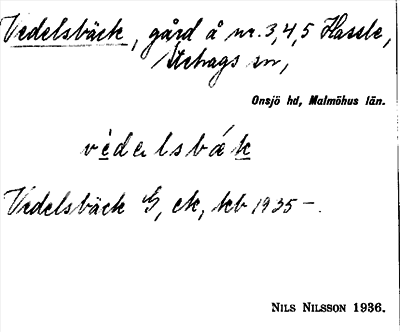 Vedelsbäck, gård å nr. 3,4,5 Hassle,
Äskags sn,
Onsjö hd, Malmöhus län.
vèdəlsbǽk
Vedelsbäck G, ek, kb 1935 –.
NILS NILSSON 1936.